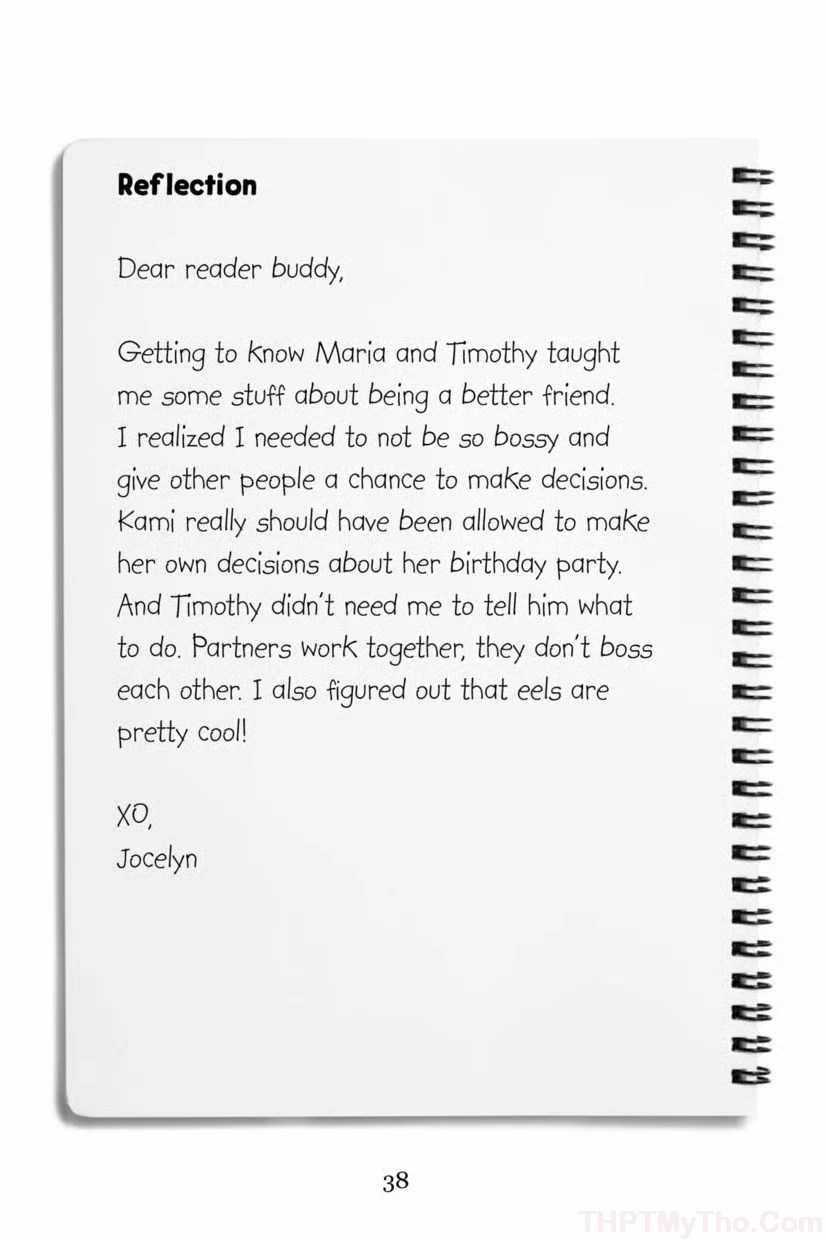 Reflection
Dear reader buddy,
Getting to know Maria and Timothy taught
me some stuff about being a better friend.
I realized I needed to not be so bossy and
give other people a chance to make decisions.
Kami really should have been allowed to make
her own decisions about her birthday party.
And Timothy didn't need me to tell him what
to do. Partners work together, they don't boss
each other. I also figured out that eels are
pretty cool!
XO,
Jocelyn
38
THPTMyTho.Com